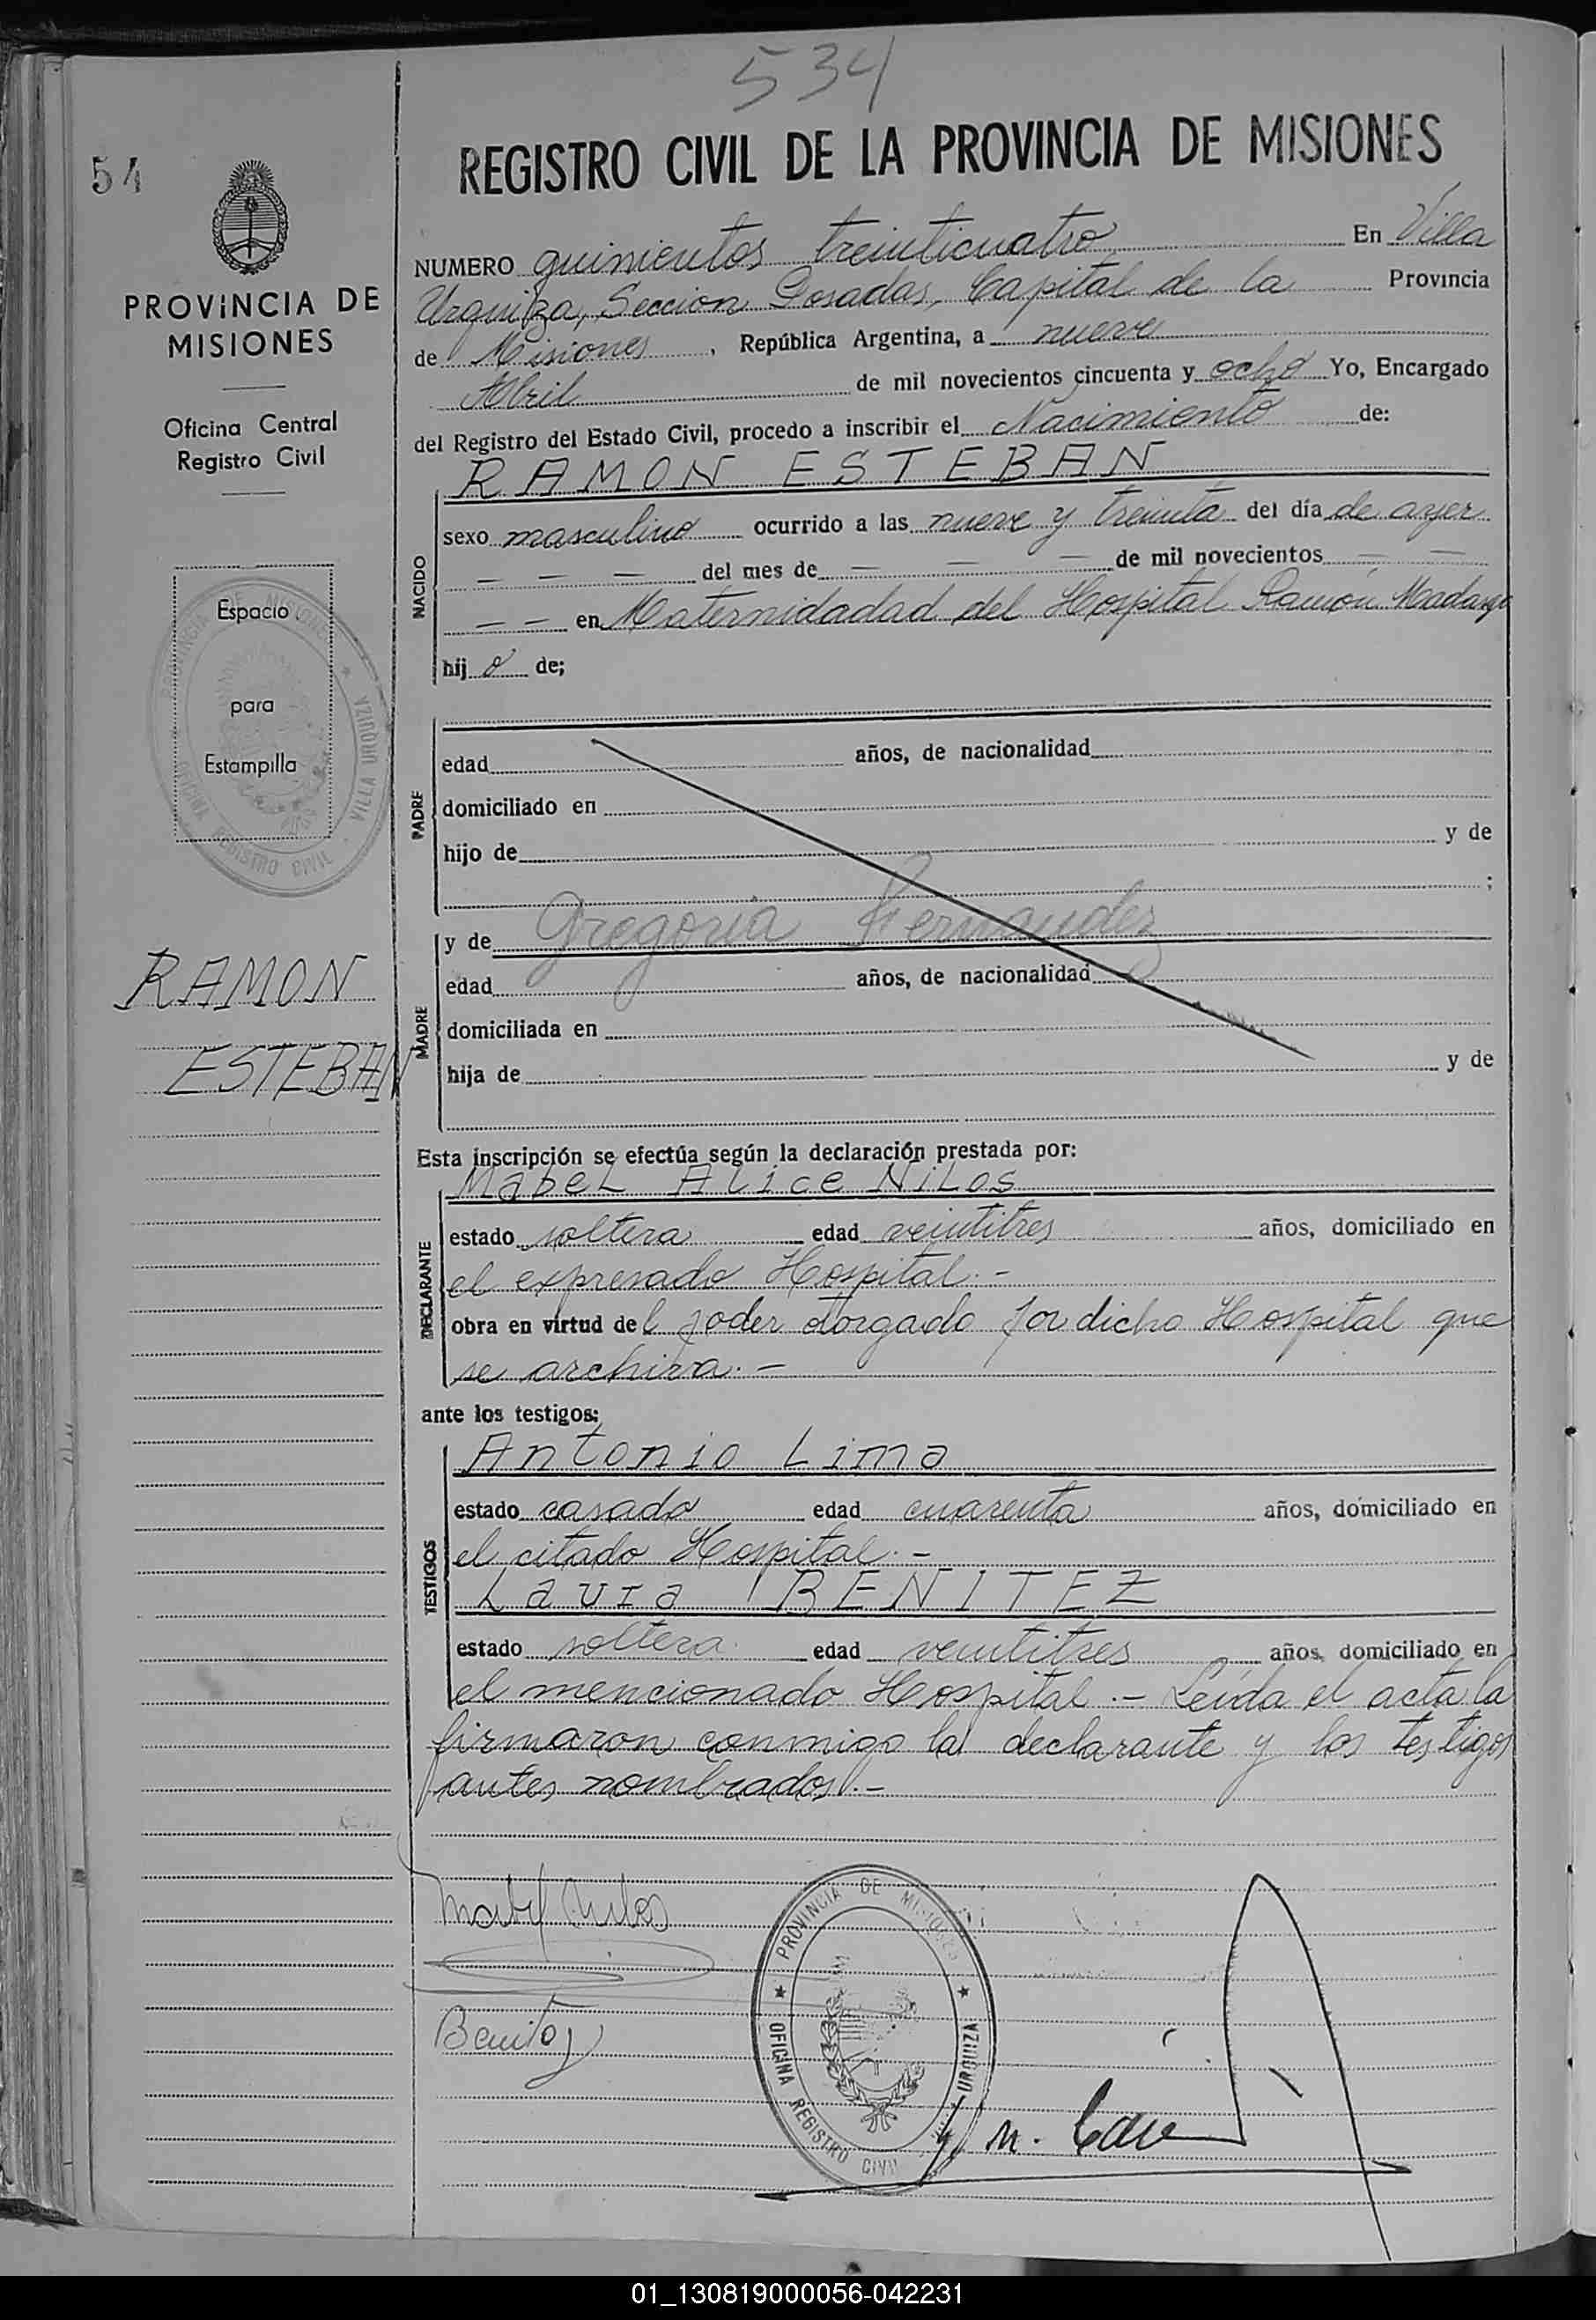 534
54
REGISTRO CIVIL DE LA PROVINCIA DE MISIONES
PROVINCIA DE
MISIONES
Oficina Central
Registro Civil
Espacio
para
Estampilla
PROVINCIA DE MISIONES ★ VILLA URQUIZA
OFICINA REGISTRO CIVIL
RAMON
ESTEBAN
NUMERO quinientos treinticuatro En Villa
Urquiza, Seccion Posadas, Capital de la Provincia
de Misiones, República Argentina, a nueve
Abril de mil novecientos cincuenta y ocho Yo, Encargado
del Registro del Estado Civil, procedo a inscribir el Nacimiento de:
NACIDO
RAMON ESTEBAN
sexo masculino ocurrido a las nueve y treinta del día de ayer
— — — del mes de — — — de mil novecientos — —
— — en Maternidadad del Hospital Ramón Madariaga
hijo de;
PADRE
edad años, de nacionalidad
domiciliado en
hijo de y de
;
MADRE
y de Gregoria Fernandez
edad años, de nacionalidad
domiciliada en
hija de y de
Esta inscripción se efectúa según la declaración prestada por:
DECLARANTE
Mabel Alice Nilos
estado soltera edad veintitres años, domiciliado en
el expresado Hospital.-
obra en virtud del poder otorgado por dicho Hospital que
se archiva.-
ante los testigos:
TESTIGOS
Antonio Lima
estado casado edad cuarenta años, domiciliado en
el citado Hospital.-
Laura BENITEZ
estado soltera edad veintitres años, domiciliado en
el mencionado Hospital.- Leída el acta la
firmaron conmigo la declarante y los testigos
antes nombrados.-
Benitez
PROVINCIA DE MISIONES
★ OFICINA REGISTRO CIVIL ★ URQUIZA
01_130819000056-042231